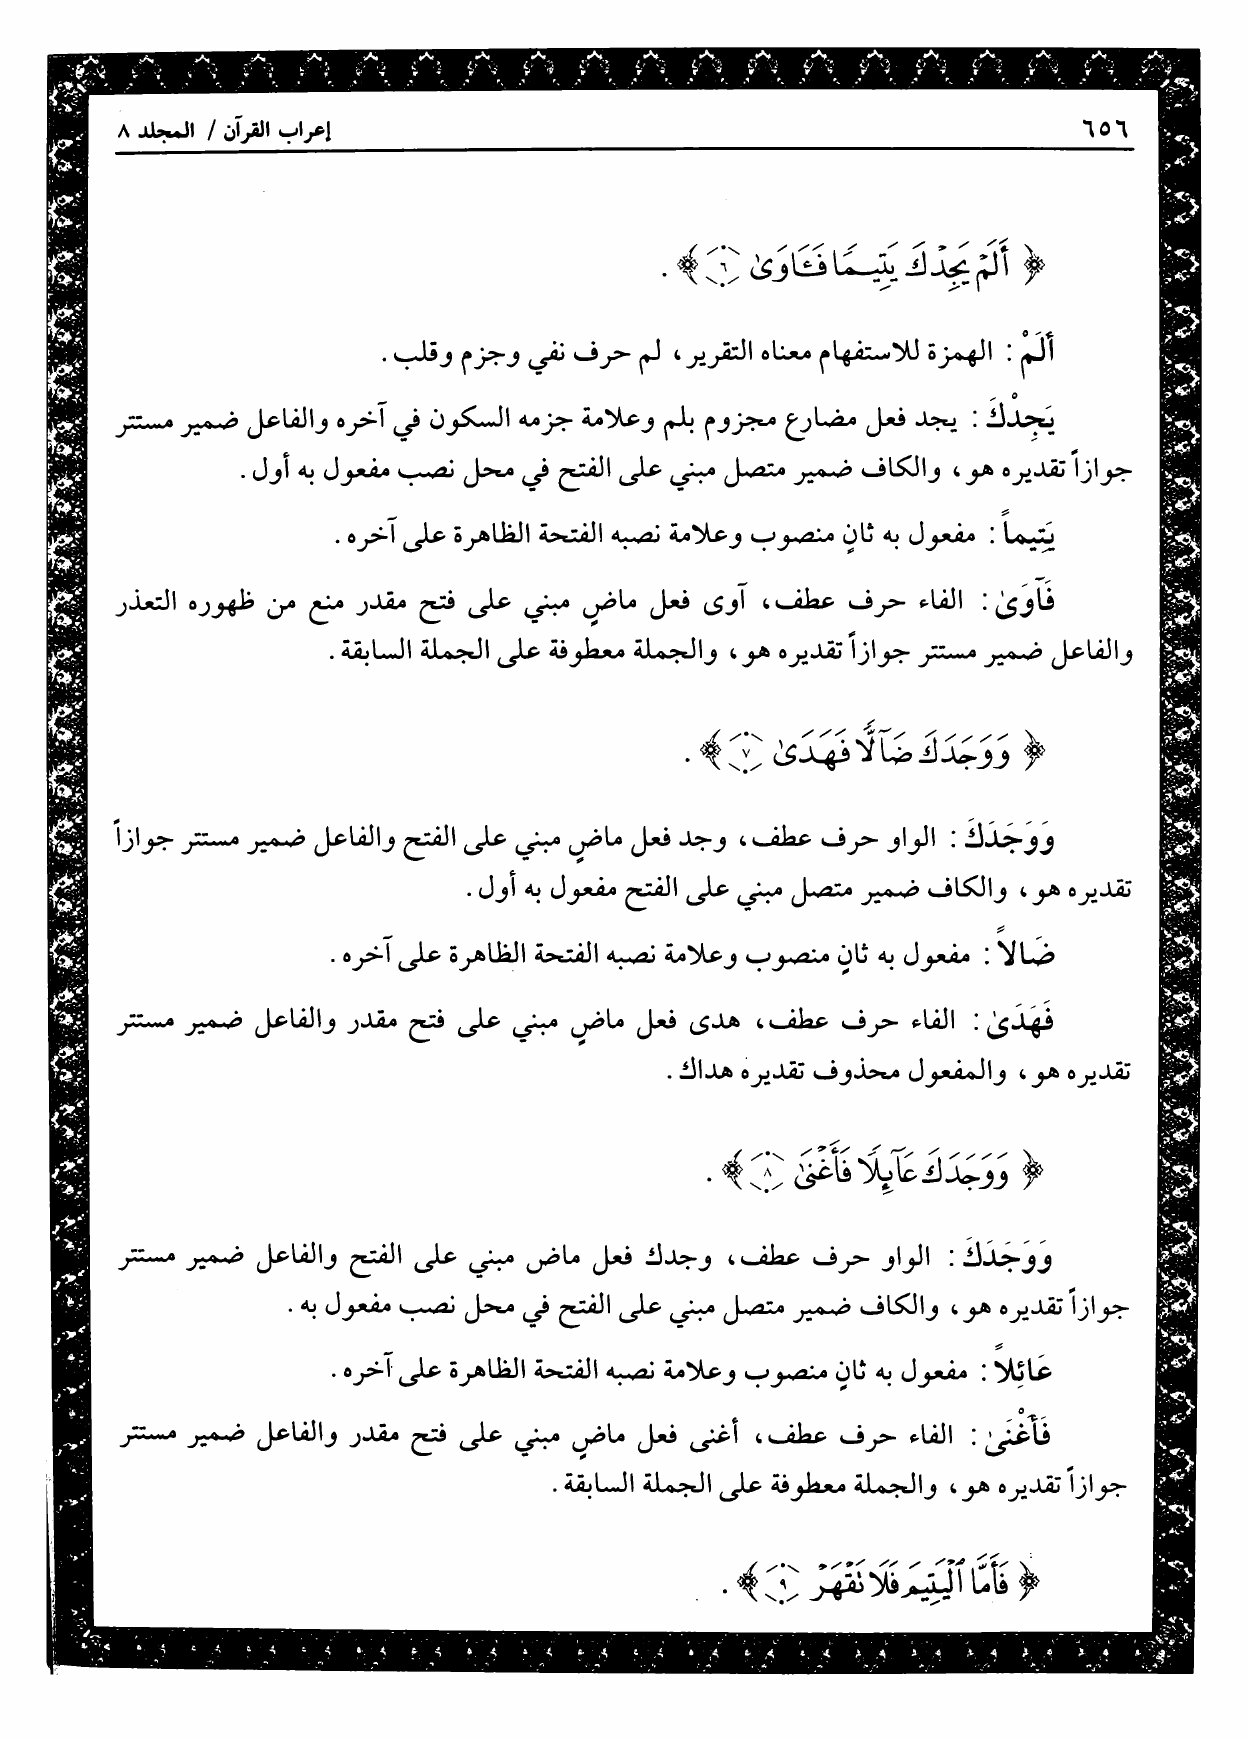 ٦٥٦ إعراب القرآن / المجلد ٨
﴿ أَلَمْ يَجِدْكَ يَتِيمًا فَـَٔاوَىٰ ٦ ﴾ .
أَلَمْ : الهمزة للاستفهام معناه التقرير ، لم حرف نفي وجزم وقلب .
يَجِدْكَ : يجد فعل مضارع مجزوم بلم وعلامة جزمه السكون في آخره والفاعل ضمير مستتر
جوازاً تقديره هو ، والكاف ضمير متصل مبني على الفتح في محل نصب مفعول به أول .
يَتِيماً : مفعول به ثانٍ منصوب وعلامة نصبه الفتحة الظاهرة على آخره .
فَآوَىٰ : الفاء حرف عطف، آوى فعل ماضٍ مبني على فتح مقدر منع من ظهوره التعذر
والفاعل ضمير مستتر جوازاً تقديره هو ، والجملة معطوفة على الجملة السابقة .
﴿ وَوَجَدَكَ ضَآلًّا فَهَدَىٰ ٧ ﴾ .
وَوَجَدَكَ : الواو حرف عطف، وجد فعل ماضٍ مبني على الفتح والفاعل ضمير مستتر جوازاً
تقديره هو ، والكاف ضمير متصل مبني على الفتح مفعول به أول .
ضَالاً : مفعول به ثانٍ منصوب وعلامة نصبه الفتحة الظاهرة على آخره .
فَهَدَىٰ : الفاء حرف عطف، هدى فعل ماضٍ مبني على فتح مقدر والفاعل ضمير مستتر
تقديره هو ، والمفعول محذوف تقديره هداك .
﴿ وَوَجَدَكَ عَآئِلًا فَأَغْنَىٰ ٨ ﴾ .
وَوَجَدَكَ : الواو حرف عطف، وجدك فعل ماض مبني على الفتح والفاعل ضمير مستتر
جوازاً تقديره هو ، والكاف ضمير متصل مبني على الفتح في محل نصب مفعول به .
عَائِلاً : مفعول به ثانٍ منصوب وعلامة نصبه الفتحة الظاهرة على آخره .
فَأَغْنَىٰ : الفاء حرف عطف، أغنى فعل ماضٍ مبني على فتح مقدر والفاعل ضمير مستتر
جوازاً تقديره هو ، والجملة معطوفة على الجملة السابقة .
﴿ فَأَمَّا ٱلْيَتِيمَ فَلَا تَقْهَرْ ٩ ﴾ .